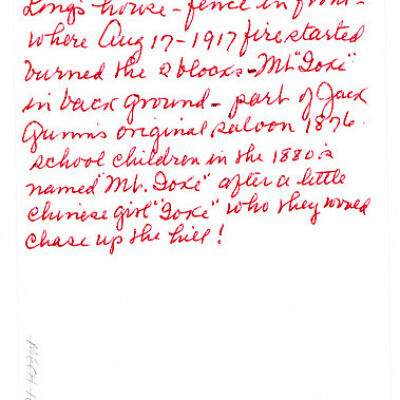 Long's house - fence in front -
where Aug 17 - 1917 fire started
burned the 2 blocks - Mt "Toxe"
in back ground - part of Jack
Gunn's original saloon 1876.
school children in the 1880's
named "Mt. Toxe" after a little
chinese girl "Toxe" who they would
chase up the hill!